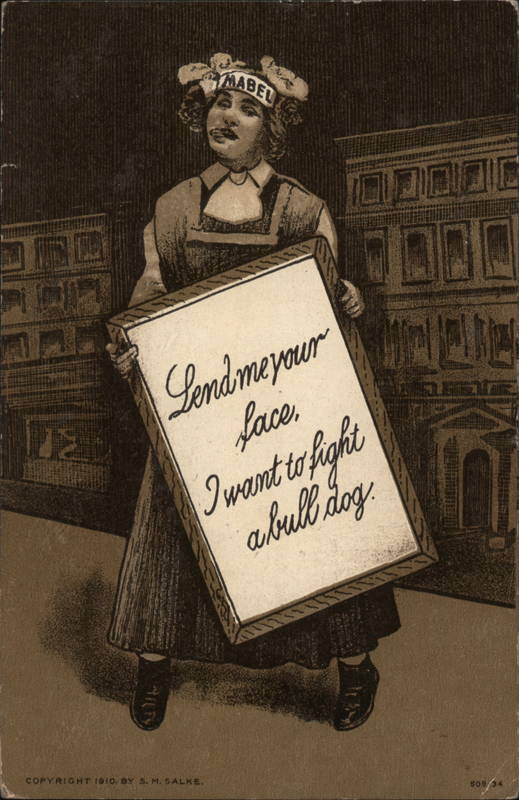 MABEL
Lend me your
face,
I want to fight
a bull dog.
COPYRIGHT 1910, BY S. M. SALKE.